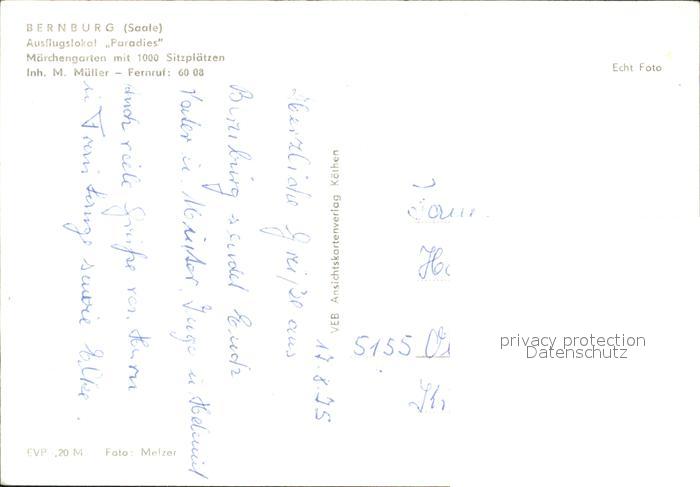 BERNBURG (Saale)
Ausflugslokal „Paradies"
Märchengarten mit 1000 Sitzplätzen
Inh. M. Müller – Fernruf: 60 08
Echt Foto
17.8.75
Herzliche Grüße aus
Bernburg sendet Euch
Vater u. Mutter, Inge u. Helmut
auch viele Grüße von Herrn
u. Frau sowie Elke.
VEB Ansichtskartenverlag Köthen
5155
privacy protection
Datenschutz
EVP ,20 M Foto: Melzer